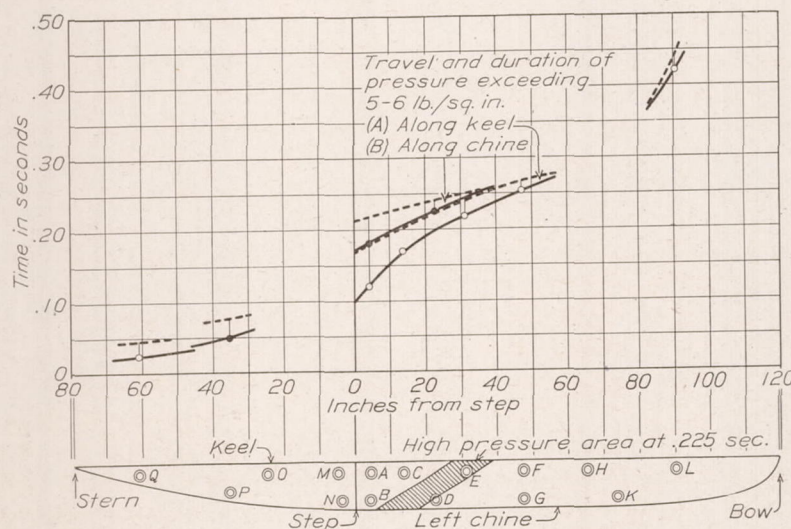 .50
.40
.30
.20
.10
0
Time in seconds
Travel and duration of
pressure exceeding
5-6 lb./sq. in.
(A) Along keel
(B) Along chine
80 60 40 20 0 20 40 60 80 100 120
Inches from step
Keel
High pressure area at .225 sec.
Q O M A C E F H L
P N B D G K
Stern
Step
Left chine
Bow